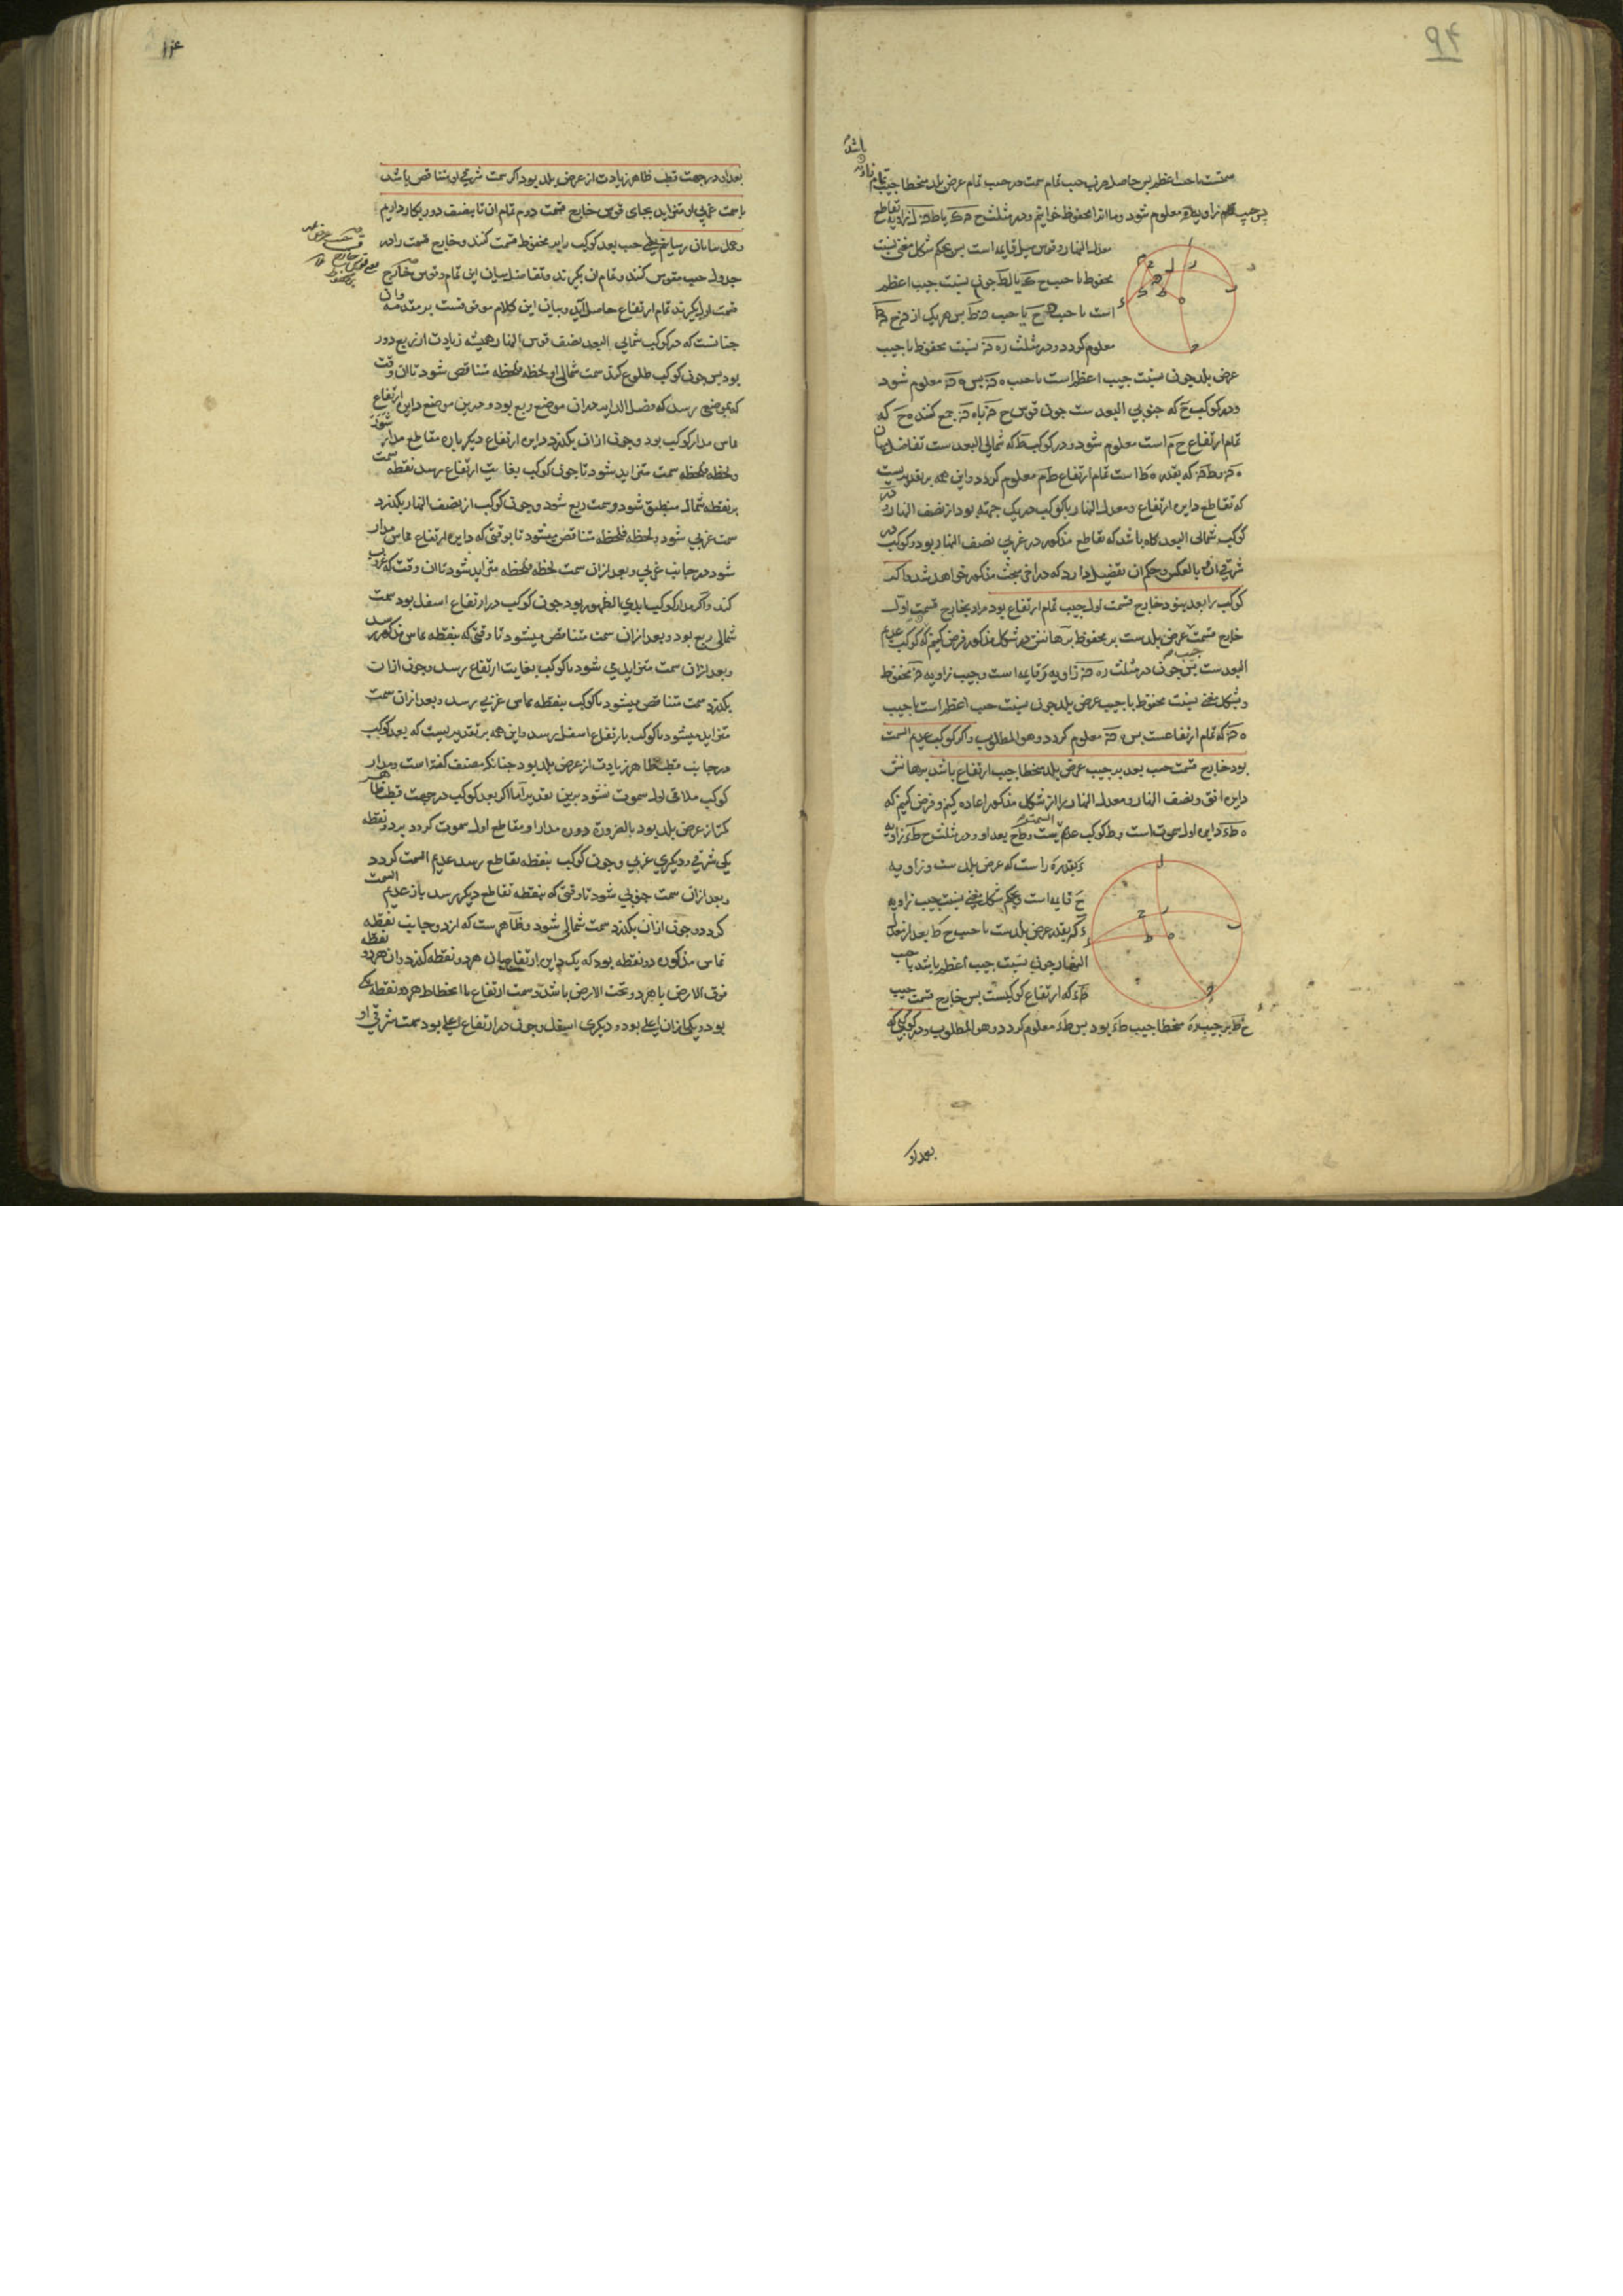 ۹۴
باشد
سمتست باجیب اعظم پس حاصل ضرب جیب تمام سمت در جیب تمام عرض بلد منحطا جیب تمام زاویه
پس جیب زاویه معلوم شود و ما انرا محفوظ خوانیم و در مثلث ح
معدل النهار و قوس میل قایمه است پس بحکم شکل مغنی نسبت
محفوظ با جیب ح یا ط چون نسبت جیب اعظم
است با جیب ح یا جیب ط پس هر یک از
معلوم کردد و در مثلث ره نسبت محفوظ با جیب
عرض بلد چون نسبت جیب اعظم است با جیب ه پس ه معلوم شود
و در کوکب ح که جنوبی البعد ست چون قوس ح را با ه جمع کنند ه ح که
تمام ارتفاع ح م است معلوم شود و در کوکب ط که شمالی البعد ست تفاضل میان
که بقدر ه ط است تمام ارتفاع ط م معلوم کردد و این همه بر تقدیریست
که تقاطع دایره ارتفاع و معدل النهار با کوکب در یک جهته بود از نصف النهار و در
کوکب شمالی البعد کاه باشد که تقاطع مذکور در غربی نصف النهار بود و کوکب در
شرقی ان و بالعکس و حکم ان تفضیل دارد که در اخر مبحث مذکور خواهد شد و اکر
کوکب را بعد نبود خارج قسمت اول جیب تمام ارتفاع بود مراد بخارج قسمت اول
خارج قسمت جیب عرض بلد ست بر محفوظ برهانش در شکل مذکور فرض کنیم که کوکب عدیم
البعد ست پس چون در مثلث ره زاویه ر قایمه است و جیب زاویه محفوظ
و بشکل مغنی نسبت محفوظ با جیب عرض بلد چون نسبت جیب اعظم است با جیب
ه که تمام ارتفاعست پس ه معلوم کردد و هو المطلوب و اکر کوکب عدیم السمت
بود خارج قسمت جیب بعد بر جیب عرض بلد منحطا جیب ارتفاع باشد برهانش
دایره افق و نصف النهار و معدل النهار را از شکل مذکور اعاده کنیم و فرض کنیم که
ه ط ء دایره اول سموت است و ط کوکب عدیم السمت و ط ح بعد او و در مثلث ح ط ء زاویه
ء بقدر ه ر است که عرض بلد ست و زاویه
ح قایمه است و بحکم شکل مغنی نسبت جیب زاویه
ء که بقدر عرض بلد ست با جیب ح ط بعد از معدل
النهار چون نسبت جیب اعظم باشد با جیب
ط ء که ارتفاع کوکبست پس خارج قسمت جیب
ح ط بر جیب ره منحطا جیب ط ء بود پس ط ء معلوم کردد و هو المطلوب و در کوکبی که
بعد او
بعد او در جهت قطب ظاهر زیادت از عرض بلد بود اکر سمت شرقی او متناقص باشد
یا سمت غربی او متزاید بجای قوس خارج قسمت دوم تمام ان تا نصف دور بکار داریم
و عمل بپایان رسانیم یعنی جیب بعد کوکب را بر محفوظ قسمت کنند و خارج قسمت را در
جدول جیب مقوس کنند و تمام ان بکیرند و تفاضل میان این تمام و قوس خارج
قسمت اول بکیرند تمام ارتفاع حاصل آید و بیان این کلام موقوفست بر مقدمه و ان
چنانست که در کوکب شمالی البعد نصف قوس النهار همیشه زیادت از ربع دور
بود پس چون کوکب طلوع کند سمت شمالی او لحظه فلحظه متناقص شود تا ان وقت
که بموضعی رسد که فضل الدایر در ان موضع ربع بود و در ین موضع دایره ارتفاع
مماس مدار کوکب بود و چون از ان بکذرد دایره ارتفاع دیکر باره مقاطع مدار شود
و لحظه فلحظه سمت متزاید شود تا چون کوکب بغایت ارتفاع رسد نقطه سمت
بر نقطه شمال منطبق شود و سمت ربع شود و چون کوکب از نصف النهار بکذرد
سمت غربی شود و لحظه فلحظه متناقص میشود تا بوقتی که دایره ارتفاع مماس مدار
شود در جانب غربی و بعد از ان سمت لحظه فلحظه متزاید شود تا ان وقت که غروب
کند و اکر مدار کوکب ابدی الظهور بود چون کوکب در ارتفاع اسفل بود سمت
شمالی ربع بود و بعد از ان سمت متناقص میشود تا وقتی که بنقطه مماس مذکور رسد
و بعد از ان سمت متزاید می شود تا کوکب بغایت ارتفاع رسد و چون از ان
بکذرد سمت متناقص میشود تا کوکب بنقطه مماس غربی رسد و بعد از ان سمت
متزاید میشود تا کوکب بارتفاع اسفل رسد و این همه بر تقدیریست که بعد کوکب
در جانب قطب ظاهر زیادت از عرض بلد بود چنانکه مصنف کفته است و مدار
کوکب ملاقی اول سموت نشود برین تقدیر اما اکر بعد کوکب در جهت قطب ظاهر
کمتر از عرض بلد بود بالضروره دوره مدار او مقاطع اول سموت کردد بر دو نقطه
یکی شرقی و دیکری غربی و چون کوکب بنقطه تقاطع رسد عدیم السمت کردد
و بعد از ان سمت جنوبی شود تا وقتی که بنقطه تقاطع دیکر رسد باز عدیم السمت
کردد و چون از ان بکذرد سمت شمالی شود و ظاهرست که از دو جانب نقطه
تماس مذکوره دو نقطه بود که یک دایره ارتفاع بان هر دو نقطه کذرد و ان هر دو نقطه
فوق الارض یا هر دو تحت الارض باشد و سمت ارتفاع یا انحطاط هر دو نقطه یکی
بود و یکی از ان اعلی بود و دیکری اسفل و چون در ارتفاع اعلی بود سمت شرقی او